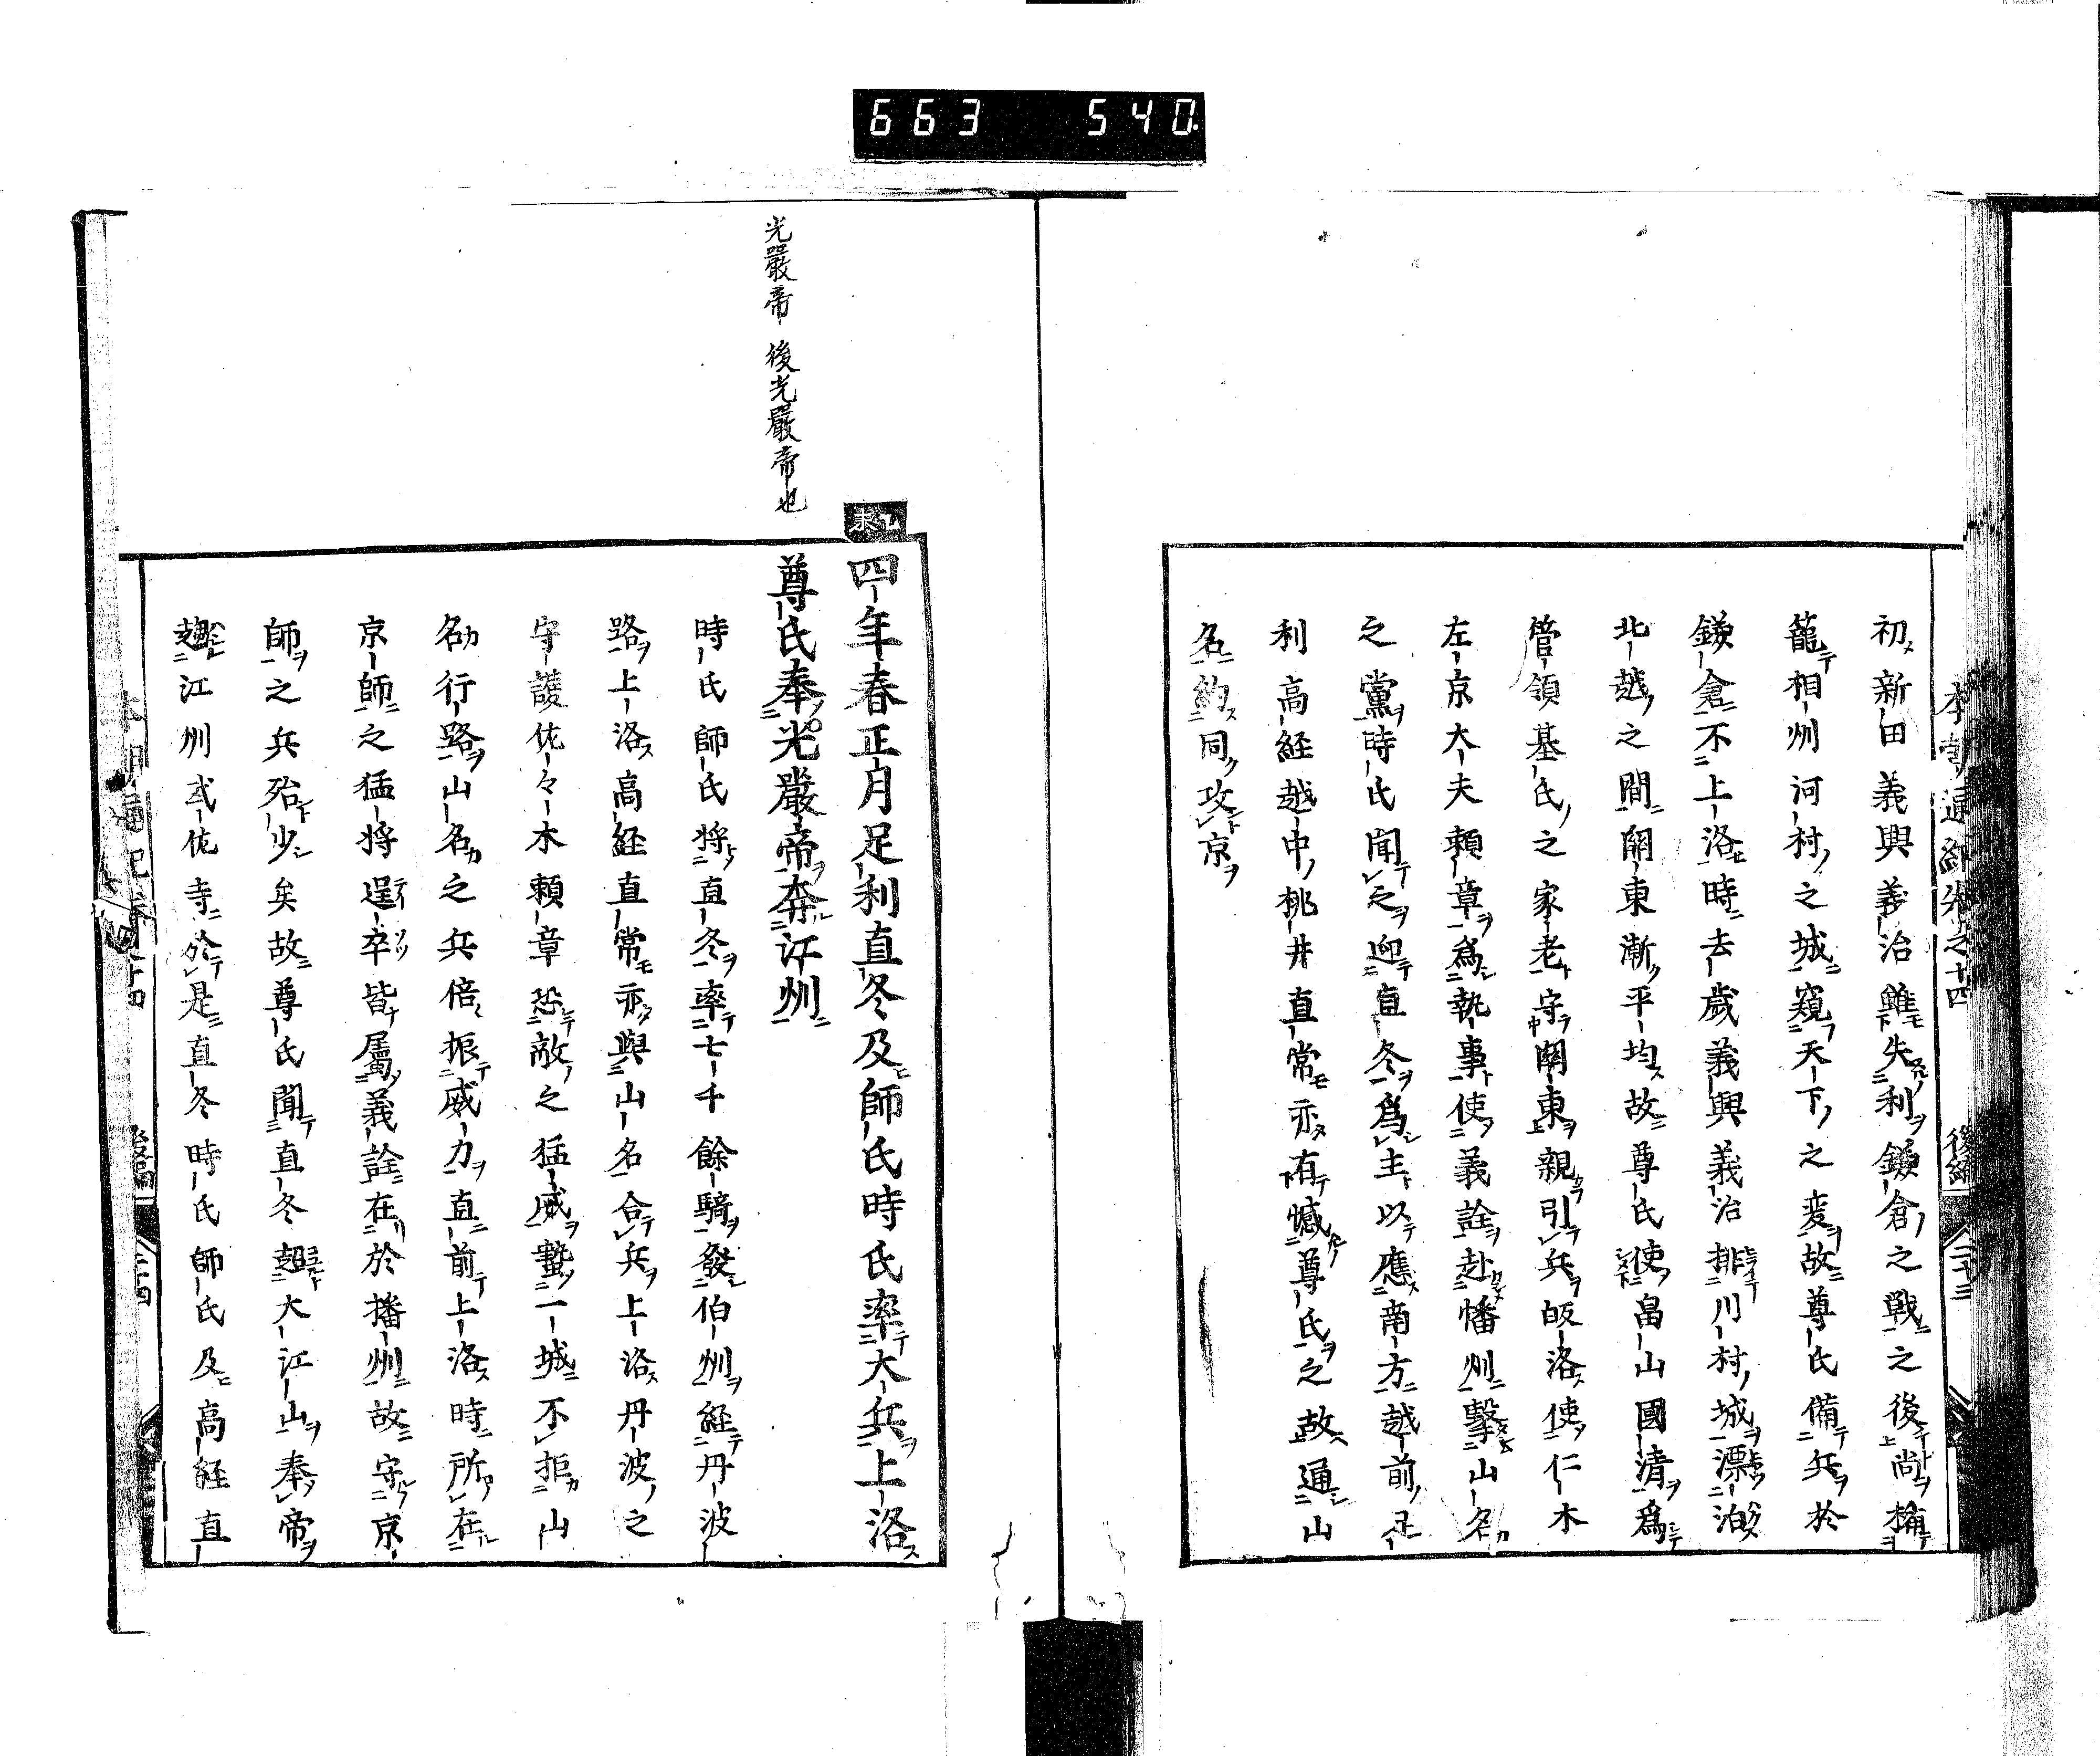 663 540
本朝通紀卷之十四 後編 二十三
初新田義興義治雖失利鎌倉之戰之後尚楯
籠相州河村之城窺天下之変故尊氏備兵於
鎌倉不上洛時去歲義興義治排川村城漂泊
北越之間關東漸平均故尊氏使畠山國清爲
管領基氏之家老守關東親引兵皈洛使仁木
左京大夫賴章爲執事使義詮赴幡州擊山名
之黨時氏聞之迎直冬爲主以應南方越前
利高経越中桃井直常亦有憾尊氏之故通山
名約同攻京
光嚴帝 後光嚴帝也
乙未
四年春正月足利直冬及師氏時氏率大兵上洛
尊氏奉光嚴帝奔江州
時氏師氏將直冬率七千餘騎發伯州経丹波
路上洛高経直常亦與山名合兵上洛丹波之
守護佐々木賴章恐敵之猛威蟄一城不拒山
名行路山名之兵倍振威力直前上洛時所在
京師之猛将逞卒皆屬義詮在於播州故守京
師之兵殆少矣故尊氏聞直冬越大江山奉帝
趣江州武佐寺於是直冬時氏師氏及高経直